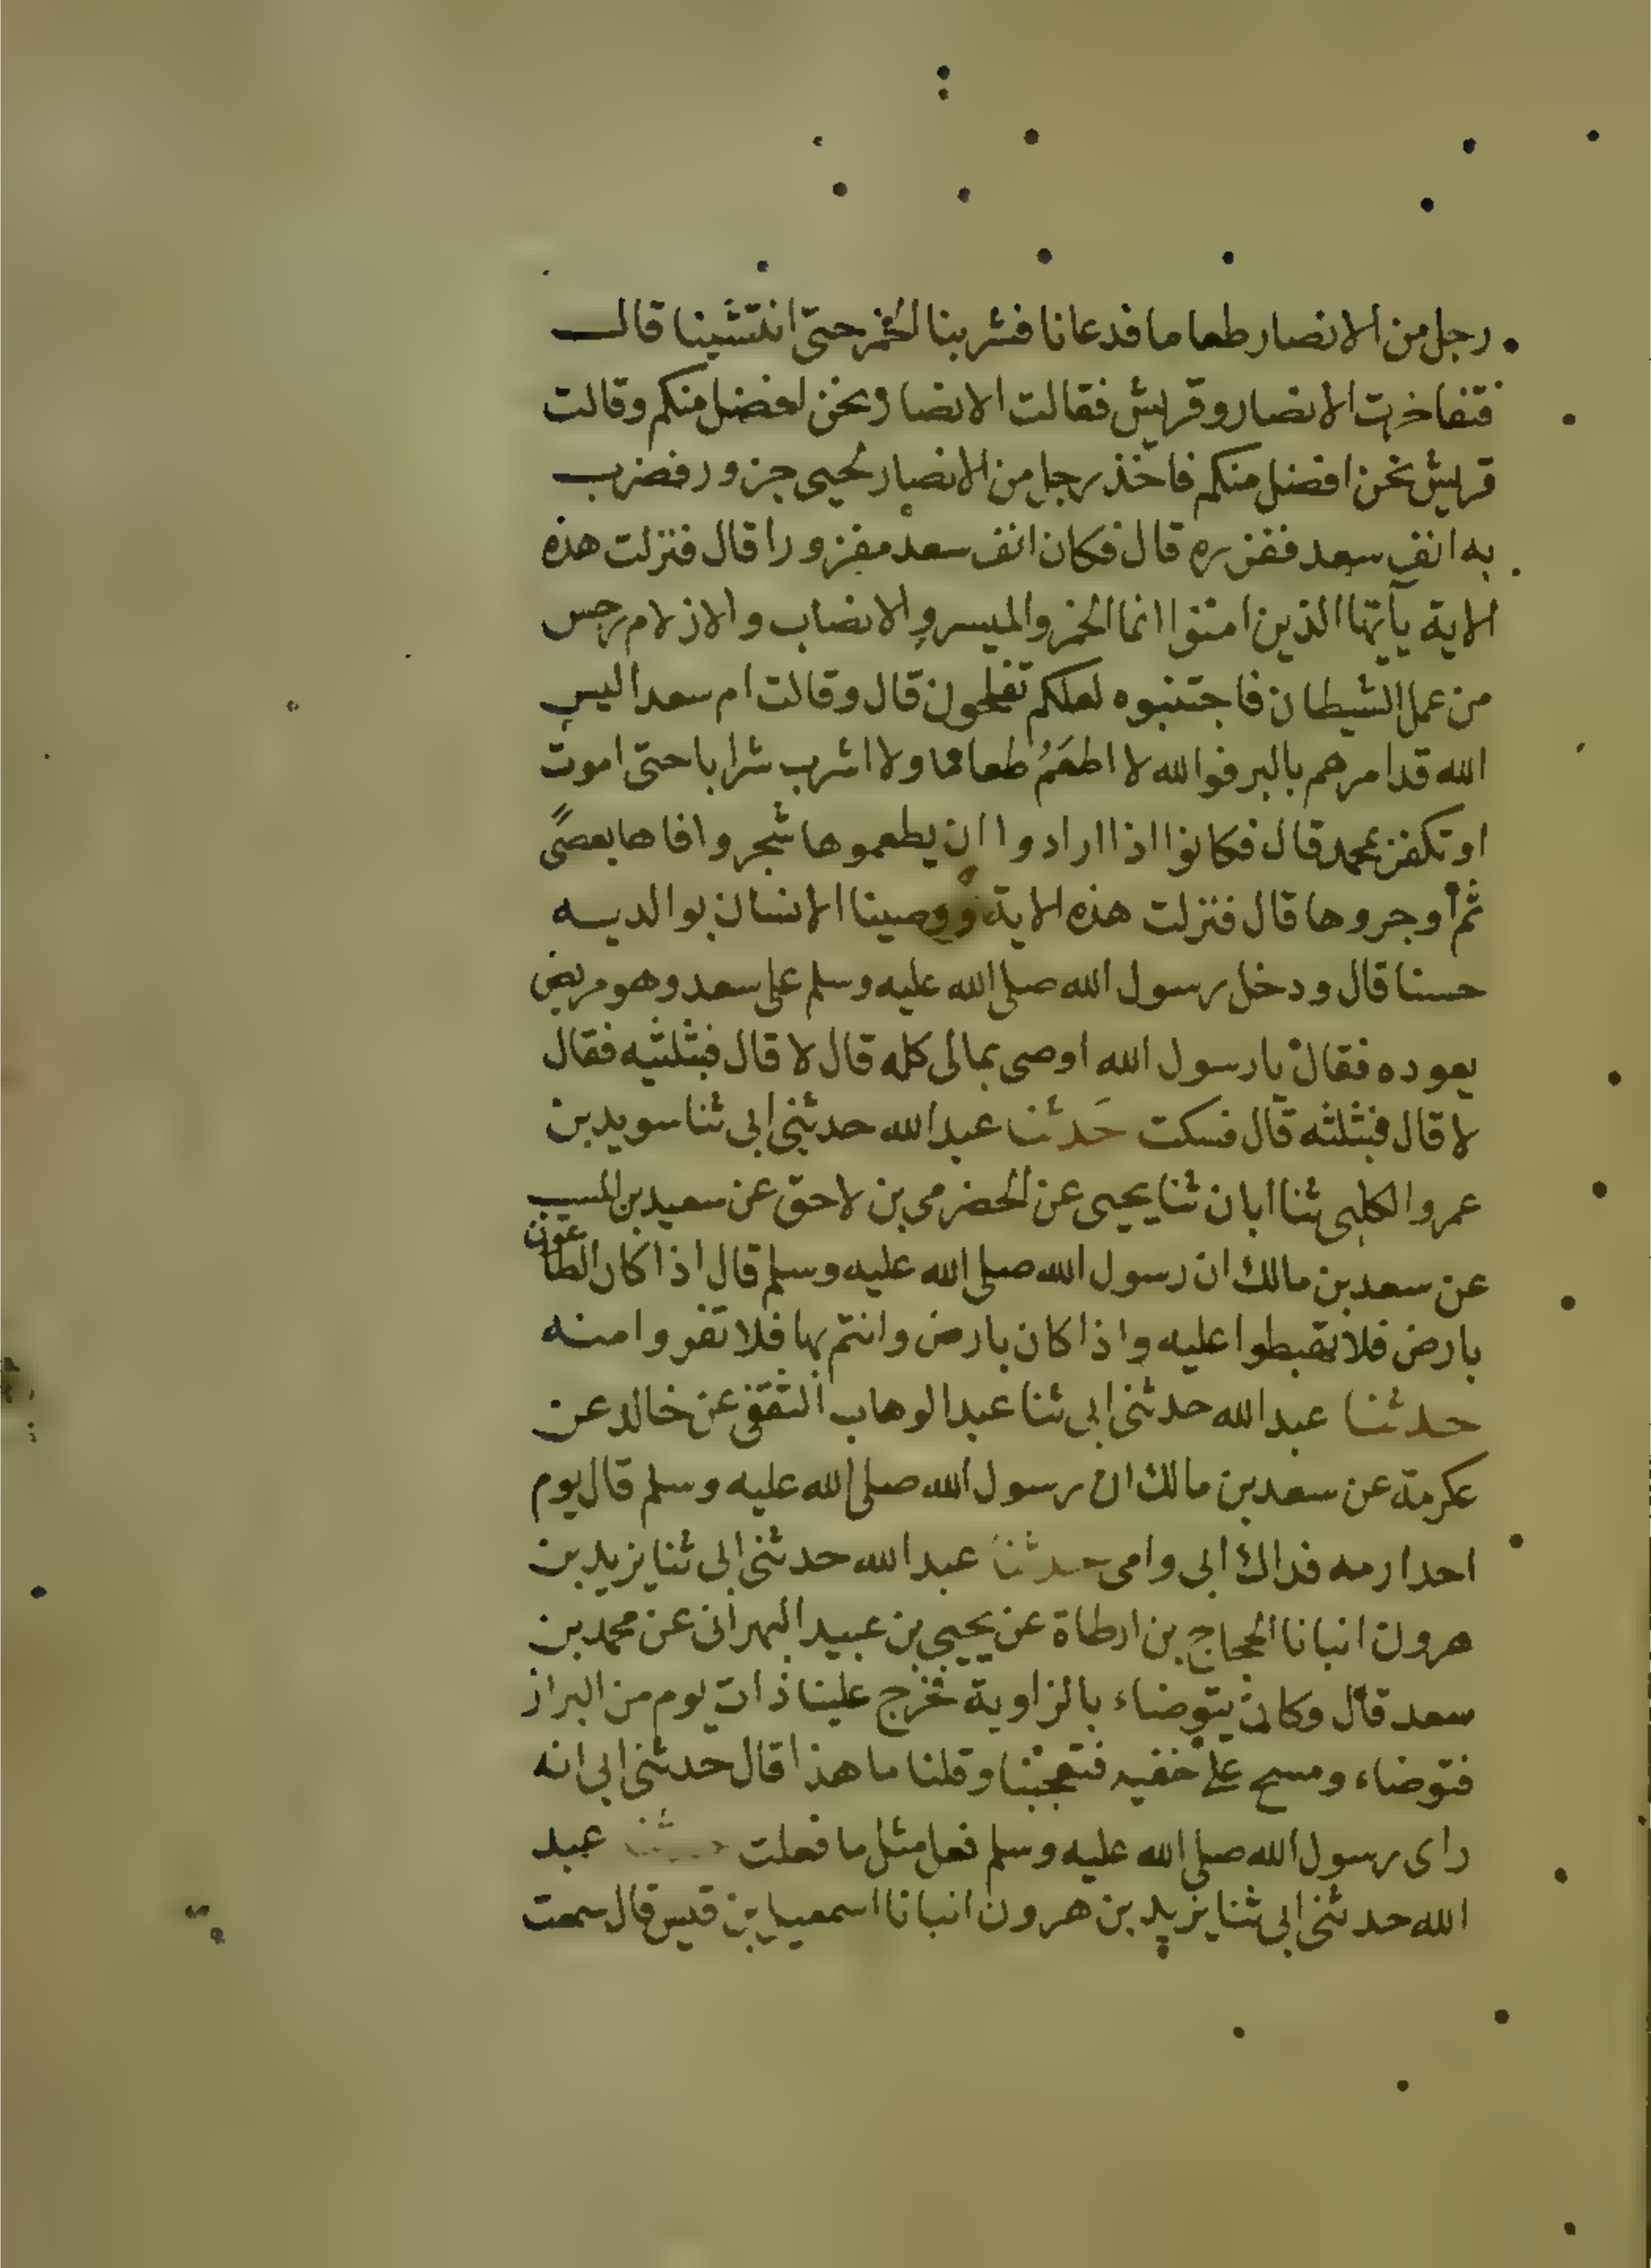 رجل من الانصار طعاما فدعانا فشربنا الخمر حتى انتشينا قال
فتفاخرت الانصار وقريش فقالت الانصار نحن افضل منكم وقالت
قريش نحن افضل منكم فاخذ رجل من الانصار لحيى جزور فضرب
به انف سعد ففزره قال فكان انف سعد مفزورا قال فنزلت هذه
الاية يآيها الذين امنوا انما الخمر والميسر والانصاب والازلام رجس
من عمل الشيطان فاجتنبوه لعلكم تفلحون قال وقالت ام سعد اليس
الله قد امرهم بالبر فوالله لا اطعَمُ طعاما ولا اشرب شرابا حتى اموت
او تكفر بمحمد قال فكانوا اذا ارادوا ان يطعموها شجروا فاها بعصًى
ثم أوجروها قال فنزلت هذه الاية ووصينا الانسان بوالديه
حسنا قال ودخل رسول الله صلى الله عليه وسلم على سعد وهو مريض
يعوده فقال يا رسول الله اوصى بمالى كله قال لا قال فبثلثيه فقال
لا قال فبثلثه قال فسكت حَدثنا عبد الله حدثنى ابى ثنا سويد بن
عمرو الكلبى ثنا ابان ثنا يحيى عن الحضرمى بن لاحق عن سعيد بن المسيب
عن سعد بن مالك ان رسول الله صلى الله عليه وسلم قال اذا كان الطاعون
بارض فلا تهبطوا عليه واذا كان بارض وانتم بها فلا تفروا منه
حدثنا عبد الله حدثنى ابى ثنا عبد الوهاب الثقفى عن خالد عن
عكرمة عن سعد بن مالك ان رسول الله صلى الله عليه وسلم قال يوم
احد ارمه فداك ابى وامى حدثنا عبد الله حدثنى ابى ثنا يزيد بن
هرون انبانا الحجاج بن ارطاة عن يحيى بن عبيد البهرانى عن محمد بن
سعد قال وكان يتوضاء بالزاوية فخرج علينا ذات يوم من البراز
فتوضاء ومسح على خفيه فتعجبنا وقلنا ما هذا قال حدثنى ابى انه
راى رسول الله صلى الله عليه وسلم فعل مثل ما فعلت حدثنا عبد
الله حدثنى ابى ثنا يزيد بن هرون انبانا اسمعيل بن قيس قال سمعت